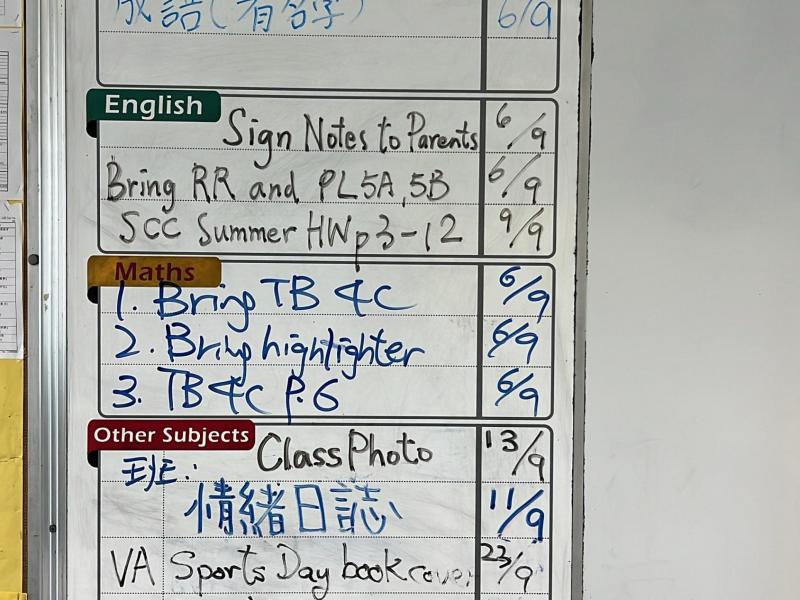 成語(有名字) 6/9
English
Sign Notes to Parents 6/9
Bring RR and PL5A,5B 6/9
SCC Summer HW p3-12 9/9
Maths
1. Bring TB 4C 6/9
2. Bring highlighter 6/9
3. TB 4C P.6 6/9
Other Subjects
Class Photo 13/9
班:
情緒日誌 11/9
VA Sports Day book cover 23/9